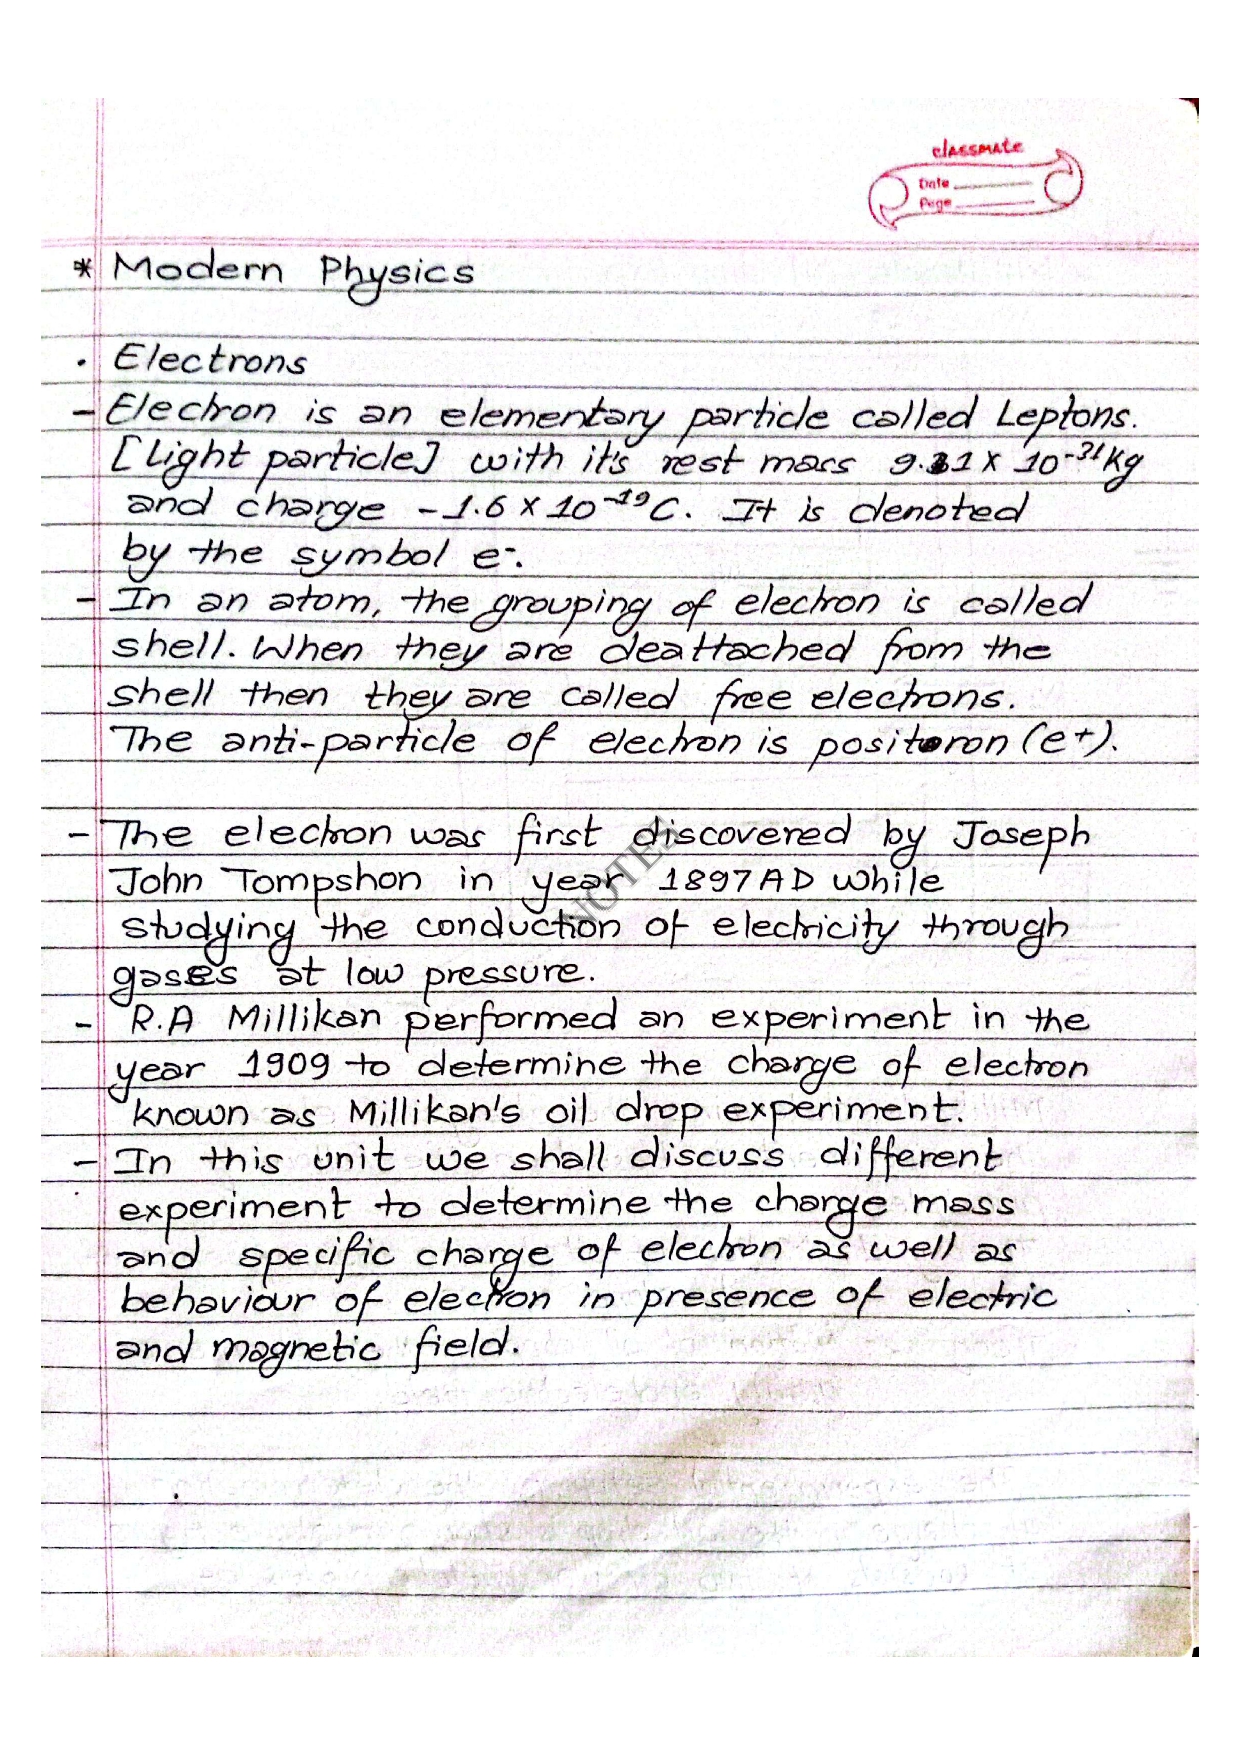 classmate
Date
Page
* Modern Physics
. Electrons
- Electron is an elementary particle called Leptons.
[Light particle] with it's rest mass 9.11 X 10⁻³¹ Kg
and charge -1.6 X 10⁻¹⁹C. It is denoted
by the symbol e⁻.
- In an atom, the grouping of electron is called
shell. When they are deattached from the
shell then they are called free electrons.
The anti-particle of electron is positoron (e⁺).
- The electron was first discovered by Joseph
John Tompshon in year 1897 AD while
studying the conduction of electricity through
gases at low pressure.
- R.A Millikan performed an experiment in the
year 1909 to determine the charge of electron
known as Millikan's oil drop experiment.
- In this unit we shall discuss different
experiment to determine the charge mass
and specific charge of electron as well as
behaviour of electron in presence of electric
and magnetic field.
NOTES